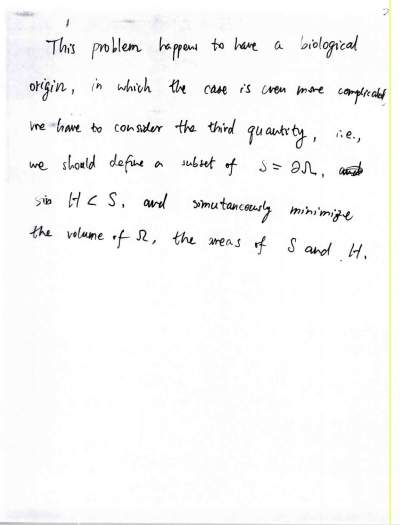 This problem happens to have a biological
origin, in which the case is even more complicated,
we have to consider the third quantity, i.e.,
we should define a subset of S = ∂Ω,
H ⊂ S, and simutaneously minimize
the volume of Ω, the areas of S and H.